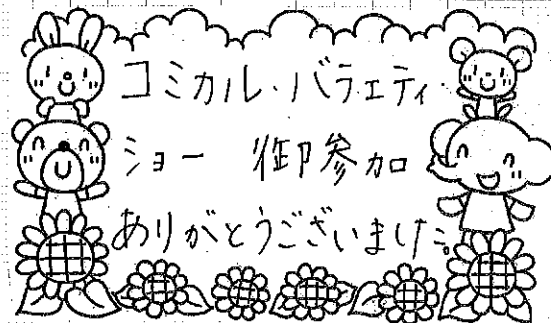 コミカル・バラエティ
ショー 御参加
ありがとうございました。